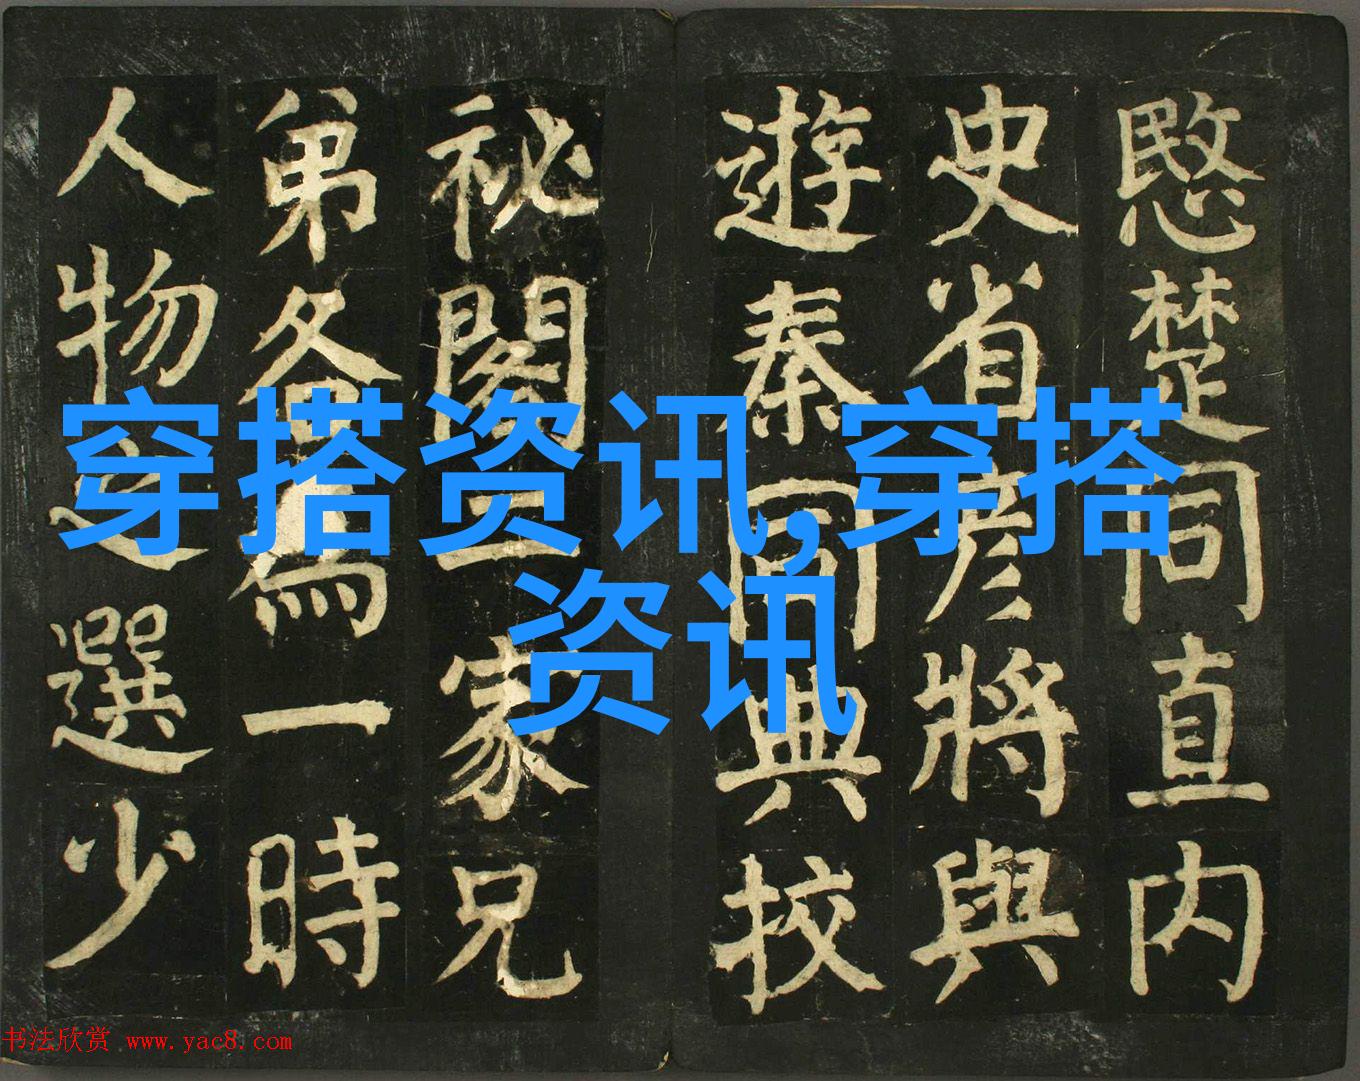 愍楚同直内
史省彦將與
遊秦同典校
祕閣二家兄
弟各爲一時
人物之選少
穿搭资讯,穿搭
资讯
书法欣赏 www.yac8.com